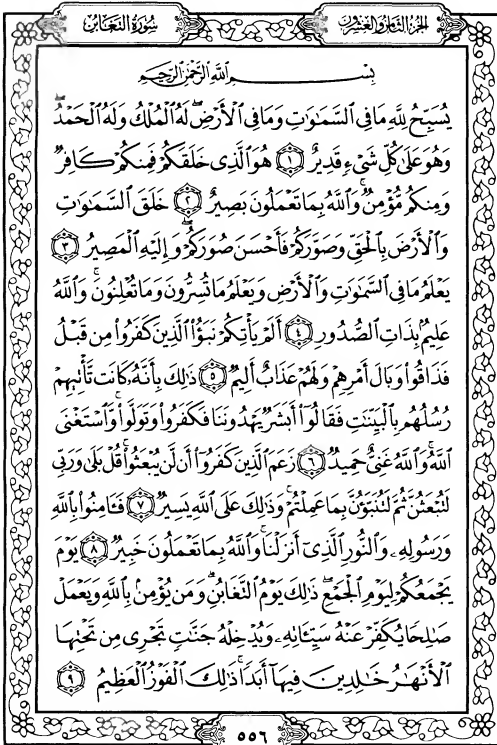 سُورَةُ التَّغَابُنِ
الجُزْءُ الثَّامِنُ وَالعِشْرُونَ
بِسْمِ ٱللَّهِ ٱلرَّحْمَٰنِ ٱلرَّحِيمِ
يُسَبِّحُ لِلَّهِ مَا فِي ٱلسَّمَٰوَٰتِ وَمَا فِي ٱلْأَرْضِۖ لَهُ ٱلْمُلْكُ وَلَهُ ٱلْحَمْدُۖ
وَهُوَ عَلَىٰ كُلِّ شَيْءٍ قَدِيرٌ ۝١ هُوَ ٱلَّذِي خَلَقَكُمْ فَمِنكُمْ كَافِرٌ
وَمِنكُم مُّؤْمِنٌۚ وَٱللَّهُ بِمَا تَعْمَلُونَ بَصِيرٌ ۝٢ خَلَقَ ٱلسَّمَٰوَٰتِ
وَٱلْأَرْضَ بِٱلْحَقِّ وَصَوَّرَكُمْ فَأَحْسَنَ صُوَرَكُمْۖ وَإِلَيْهِ ٱلْمَصِيرُ ۝٣
يَعْلَمُ مَا فِي ٱلسَّمَٰوَٰتِ وَٱلْأَرْضِ وَيَعْلَمُ مَا تُسِرُّونَ وَمَا تُعْلِنُونَۚ وَٱللَّهُ
عَلِيمٌۢ بِذَاتِ ٱلصُّدُورِ ۝٤ أَلَمْ يَأْتِكُمْ نَبَؤُا۟ ٱلَّذِينَ كَفَرُوا۟ مِن قَبْلُ
فَذَاقُوا۟ وَبَالَ أَمْرِهِمْ وَلَهُمْ عَذَابٌ أَلِيمٌ ۝٥ ذَٰلِكَ بِأَنَّهُۥ كَانَت تَّأْتِيهِمْ
رُسُلُهُم بِٱلْبَيِّنَٰتِ فَقَالُوٓا۟ أَبَشَرٌ يَهْدُونَنَا فَكَفَرُوا۟ وَتَوَلَّوا۟ۚ وَّٱسْتَغْنَى
ٱللَّهُۚ وَٱللَّهُ غَنِيٌّ حَمِيدٌ ۝٦ زَعَمَ ٱلَّذِينَ كَفَرُوٓا۟ أَن لَّن يُبْعَثُوا۟ۚ قُلْ بَلَىٰ وَرَبِّي
لَتُبْعَثُنَّ ثُمَّ لَتُنَبَّؤُنَّ بِمَا عَمِلْتُمْۚ وَذَٰلِكَ عَلَى ٱللَّهِ يَسِيرٌ ۝٧ فَـَٔامِنُوا۟ بِٱللَّهِ
وَرَسُولِهِۦ وَٱلنُّورِ ٱلَّذِيٓ أَنزَلْنَاۚ وَٱللَّهُ بِمَا تَعْمَلُونَ خَبِيرٌ ۝٨ يَوْمَ
يَجْمَعُكُمْ لِيَوْمِ ٱلْجَمْعِۖ ذَٰلِكَ يَوْمُ ٱلتَّغَابُنِۗ وَمَن يُؤْمِنۢ بِٱللَّهِ وَيَعْمَلْ
صَٰلِحًا يُكَفِّرْ عَنْهُ سَيِّـَٔاتِهِۦ وَيُدْخِلْهُ جَنَّٰتٍ تَجْرِي مِن تَحْتِهَا
ٱلْأَنْهَٰرُ خَٰلِدِينَ فِيهَآ أَبَدًاۚ ذَٰلِكَ ٱلْفَوْزُ ٱلْعَظِيمُ ۝٩
٥٥٦